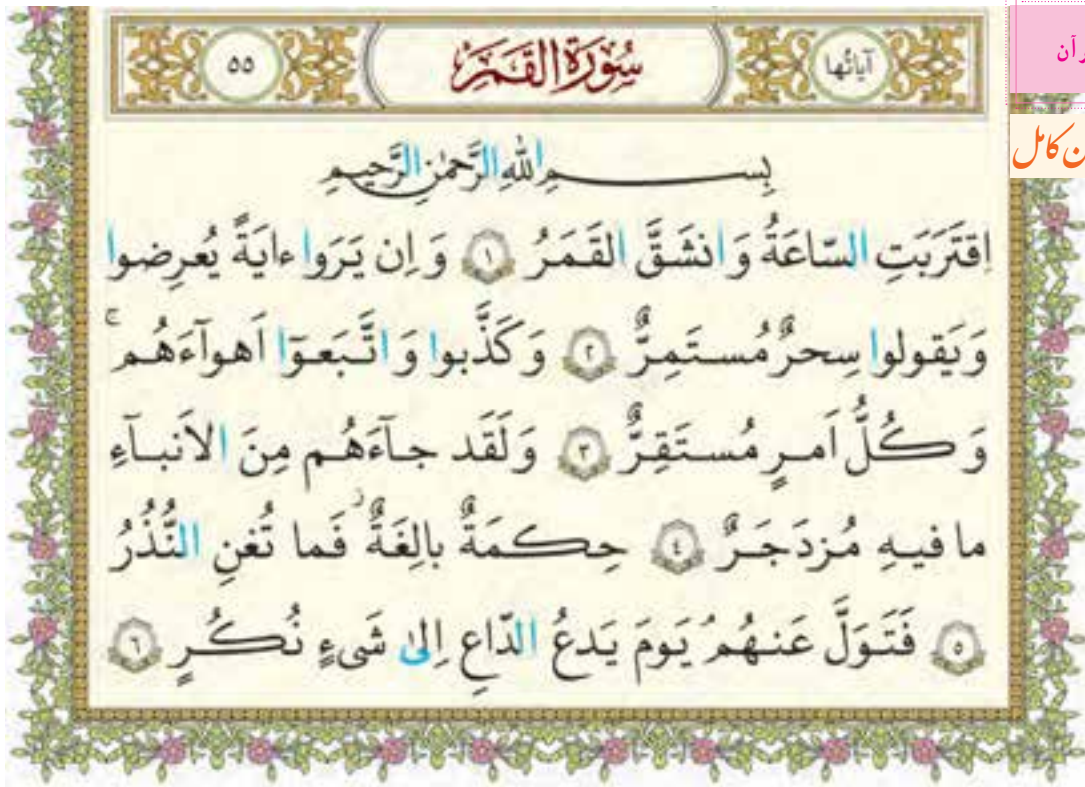 آیاتُها سُورَةُ القَمَرِ ٥٥
بِسمِ اللهِ الرَّحمٰنِ الرَّحیمِ
اِقتَرَبَتِ السّاعَةُ وَ انشَقَّ القَمَرُ ١ وَ اِن یَرَوا ءایَةً یُعرِضوا
وَ یَقولوا سِحرٌ مُستَمِرٌّ ٢ وَ کَذَّبوا وَ اتَّبَعوٓا اَهوآءَهُم ۚ
وَ کُلُّ اَمرٍ مُستَقِرٌّ ٣ وَ لَقَد جآءَهُم مِنَ الاَنبآءِ
ما فیهِ مُزدَجَرٌ ٤ حِکمَةٌ بالِغَةٌ ۖ فَما تُغنِ النُّذُرُ
٥ فَتَوَلَّ عَنهُم ۘ یَومَ یَدعُ الدّاعِ اِلیٰ شَیءٍ نُکُرٍ ٦
ن کامل